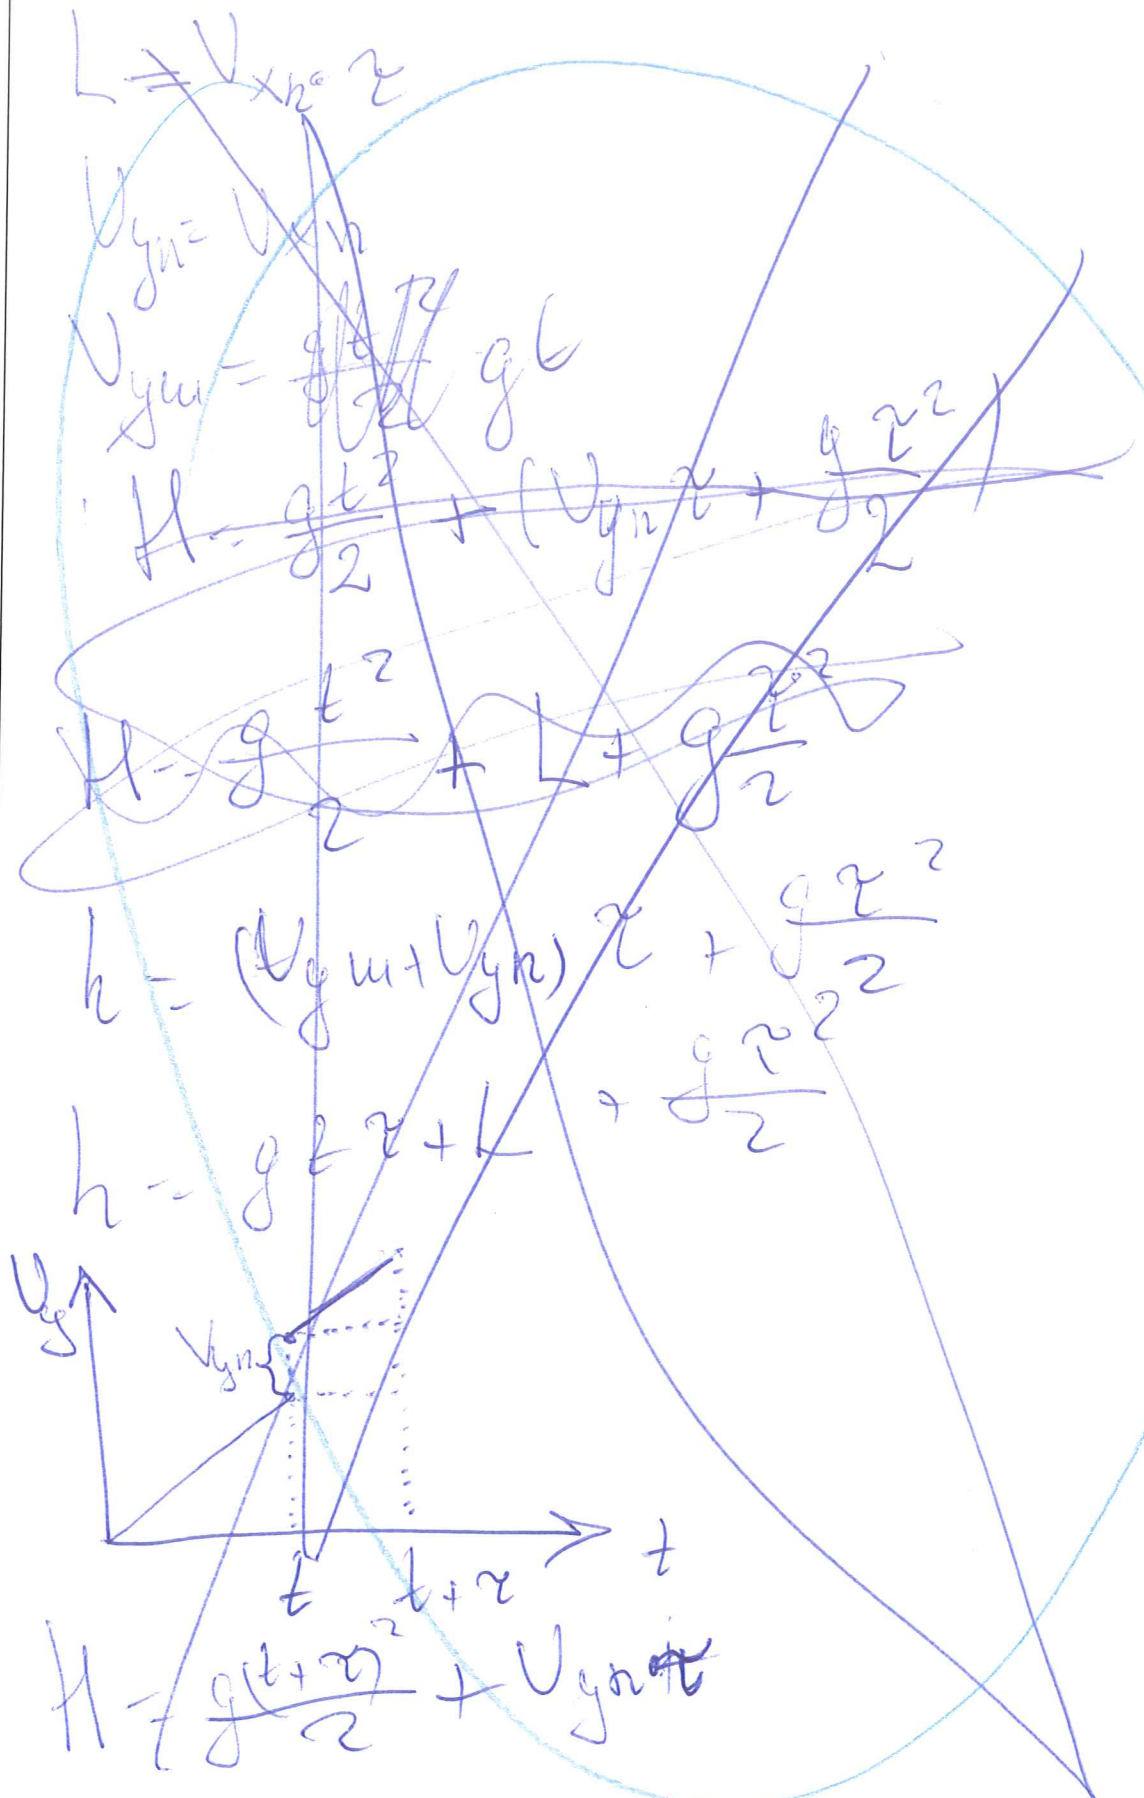 L = Vxn · τ
Vyn = Vxn
Vyш = gt
H = gt²/2 + (Vyn τ + gτ²/2)
H = g t²/2 + L + g τ²/2
h = (Vyш + Vyn) τ + gτ²/2
h = g t τ + L + gτ²/2
Vy
Vyn
t
t t+τ
H = g(t+τ)²/2 + Vyn τ